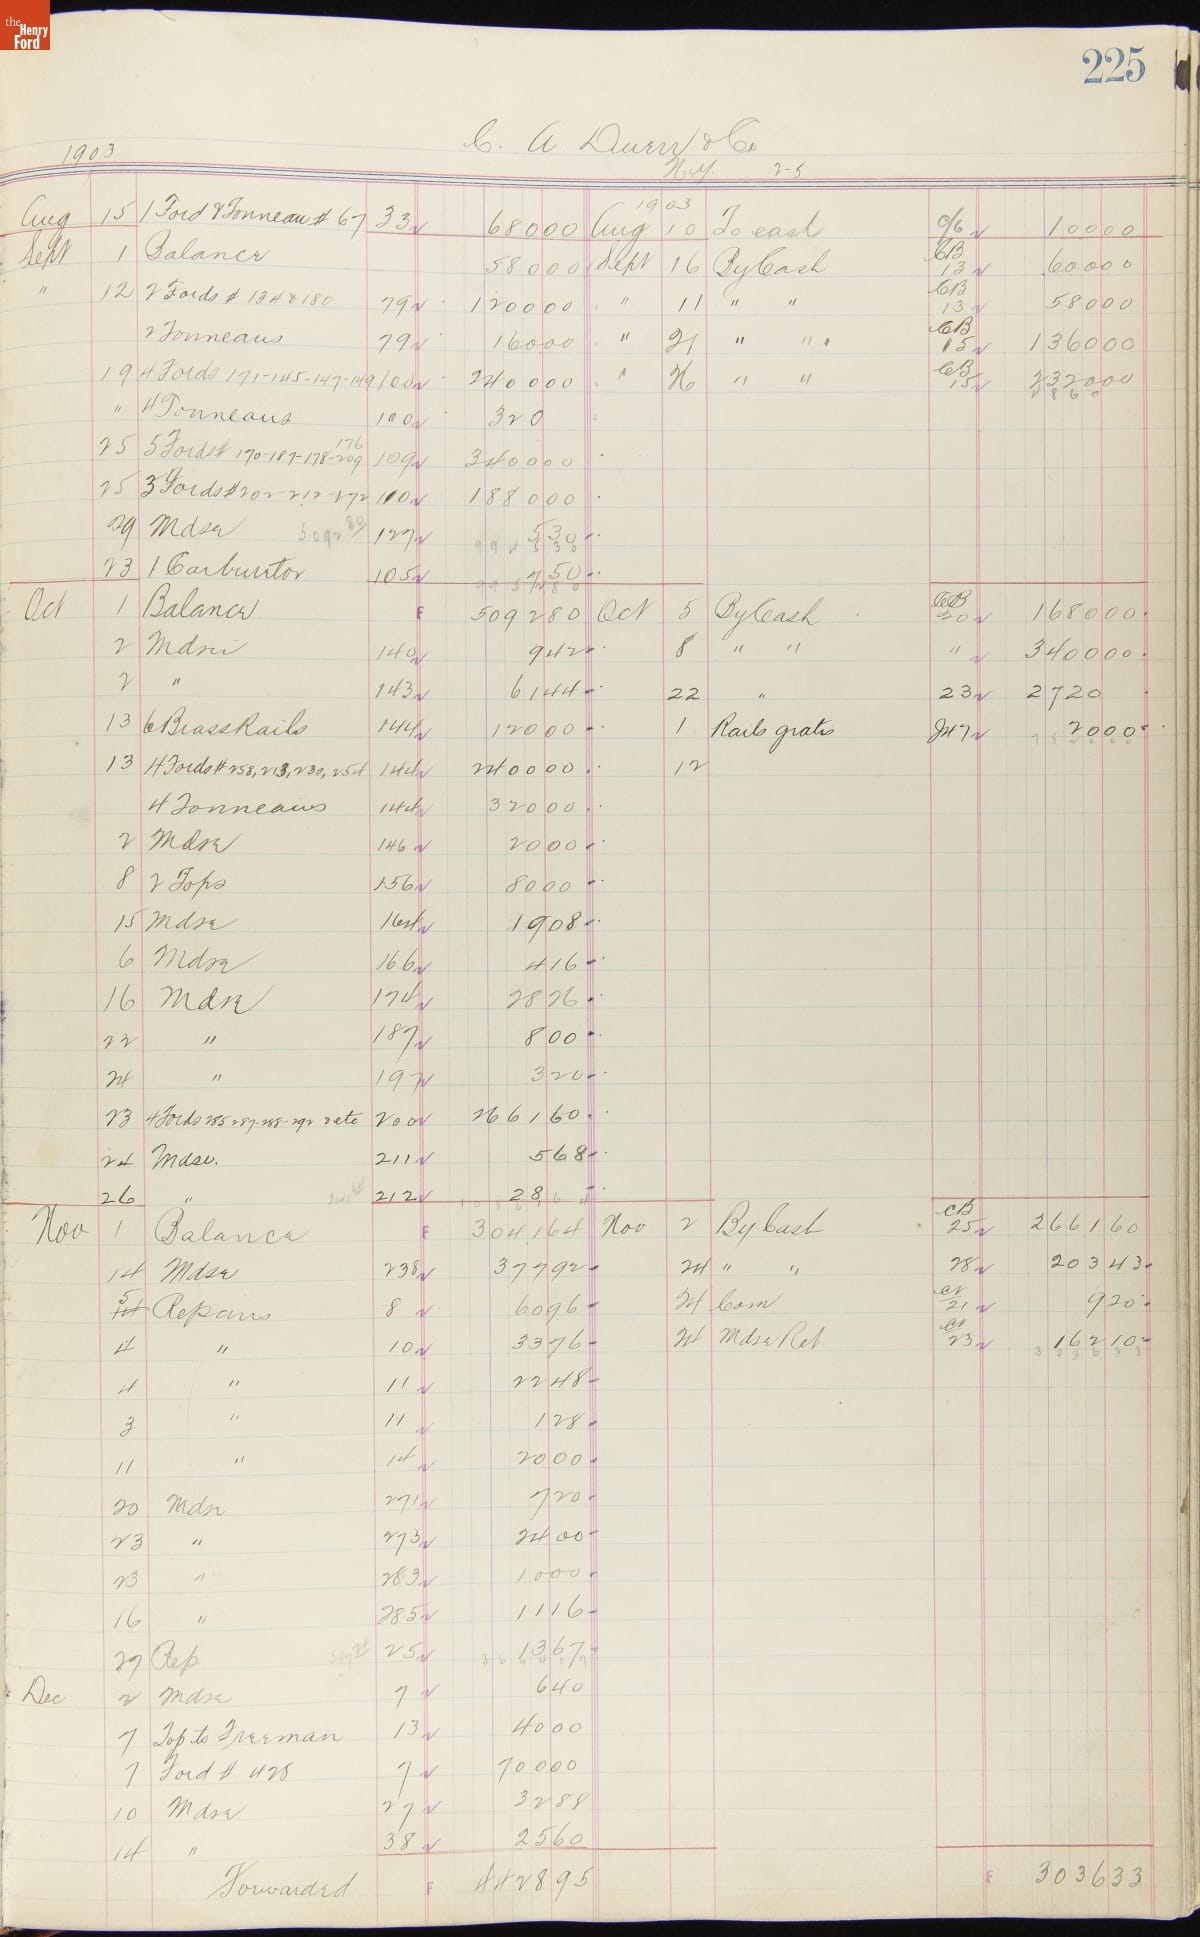 the Henry Ford
225
C. A. Duerr & Co
1903 N.Y. 2-5
1903
Aug 15 1 Ford & Tonneau # 67 33 68000 Aug 10 To cash C/6 10000
Sept 1 Balance 58000 Sept 16 By Cash CB 13 60000
" 12 2 Fords # 134 & 180 79 120000 " 11 " " CB 13 58000
2 Tonneaus 79 16000 " 21 " " CB 15 136000
19 4 Fords 171-145-147-149 100 240000 " 26 " " CB 15 232000
4860
" 4 Tonneaus 100 320
25 5 Fords # 170-187-178-209 176 109 340000
25 3 Fords # 202-212-172 110 188000
29 Mdse 5092 80 127 530
23 1 Carburetor 105 750
Oct 1 Balance F 509280 Oct 5 By Cash CB 20 168000
2 Mdse 140 942 8 " " " 340000
2 " 143 6144 22 " 23 2720
13 6 Brass Rails 144 12000 1 Rails gratis J47 2000
13 4 Fords # 258, 213, 230, 254 144 240000 12
4 Tonneaus 144 32000
2 Mdse 146 2000
8 2 Tops 156 8000
15 Mdse 164 1908
6 Mdse 166 416
16 Mdse 174 2826
22 " 187 800
24 " 197 320
23 4 Fords 285-287-288-292 & etc 200 266160
24 Mdse. 211 568
26 " 3041 64 212 28
Nov 1 Balance F 304164 Nov 2 By Cash CB 25 266160
14 Mdse 238 37792 24 " " 28 20343
5 Repairs 8 6096 24 Com 21 920
4 " 10 3376 24 Mdse Ret 23 16210
303633
4 " 11 2248
3 " 11 128
11 " 14 2000
20 Mdse 271 720
23 " 273 2400
23 " 283 1000
16 " 285 1116
27 Rep 25 1367
Dec 2 Mdse 7 640
7 Top to Freeman 13 4000
7 Ford # 428 7 70000
10 Mdse 27 3288
14 " 38 2560
Forwarded F 442895 F 303633